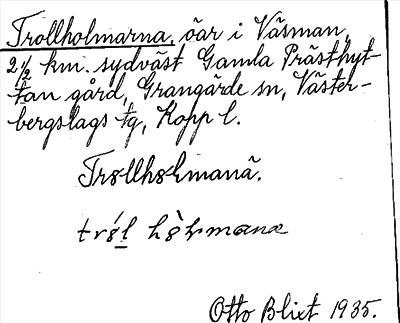 Trollholmarna, öar i Väsman,
2 1/2 km. sydväst Gamla Prästhyt-
tan gård, Grangärde sn, Väster-
bergslags tg, Kopp l.
Trollholmanä.
Otto Blixt 1935.